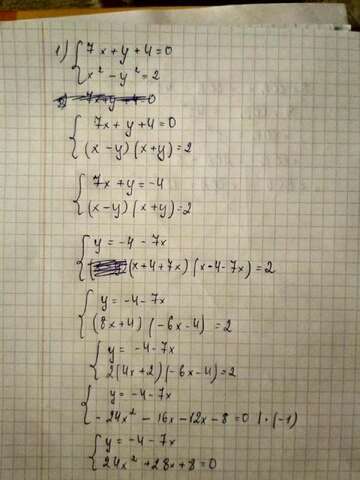 1) { 7x + y + 4 = 0
x² - y² = 2
{ 7x + y + 4 = 0
(x - y)(x + y) = 2
{ 7x + y = -4
(x - y)(x + y) = 2
{ y = -4 - 7x
(x + 4 + 7x)(x - 4 - 7x) = 2
{ y = -4 - 7x
(8x + 4)(-6x - 4) = 2
{ y = -4 - 7x
2(4x + 2)(-6x - 4) = 2
{ y = -4 - 7x
- 24x² - 16x - 12x - 8 = 0 | · (-1)
{ y = -4 - 7x
24x² + 28x + 8 = 0